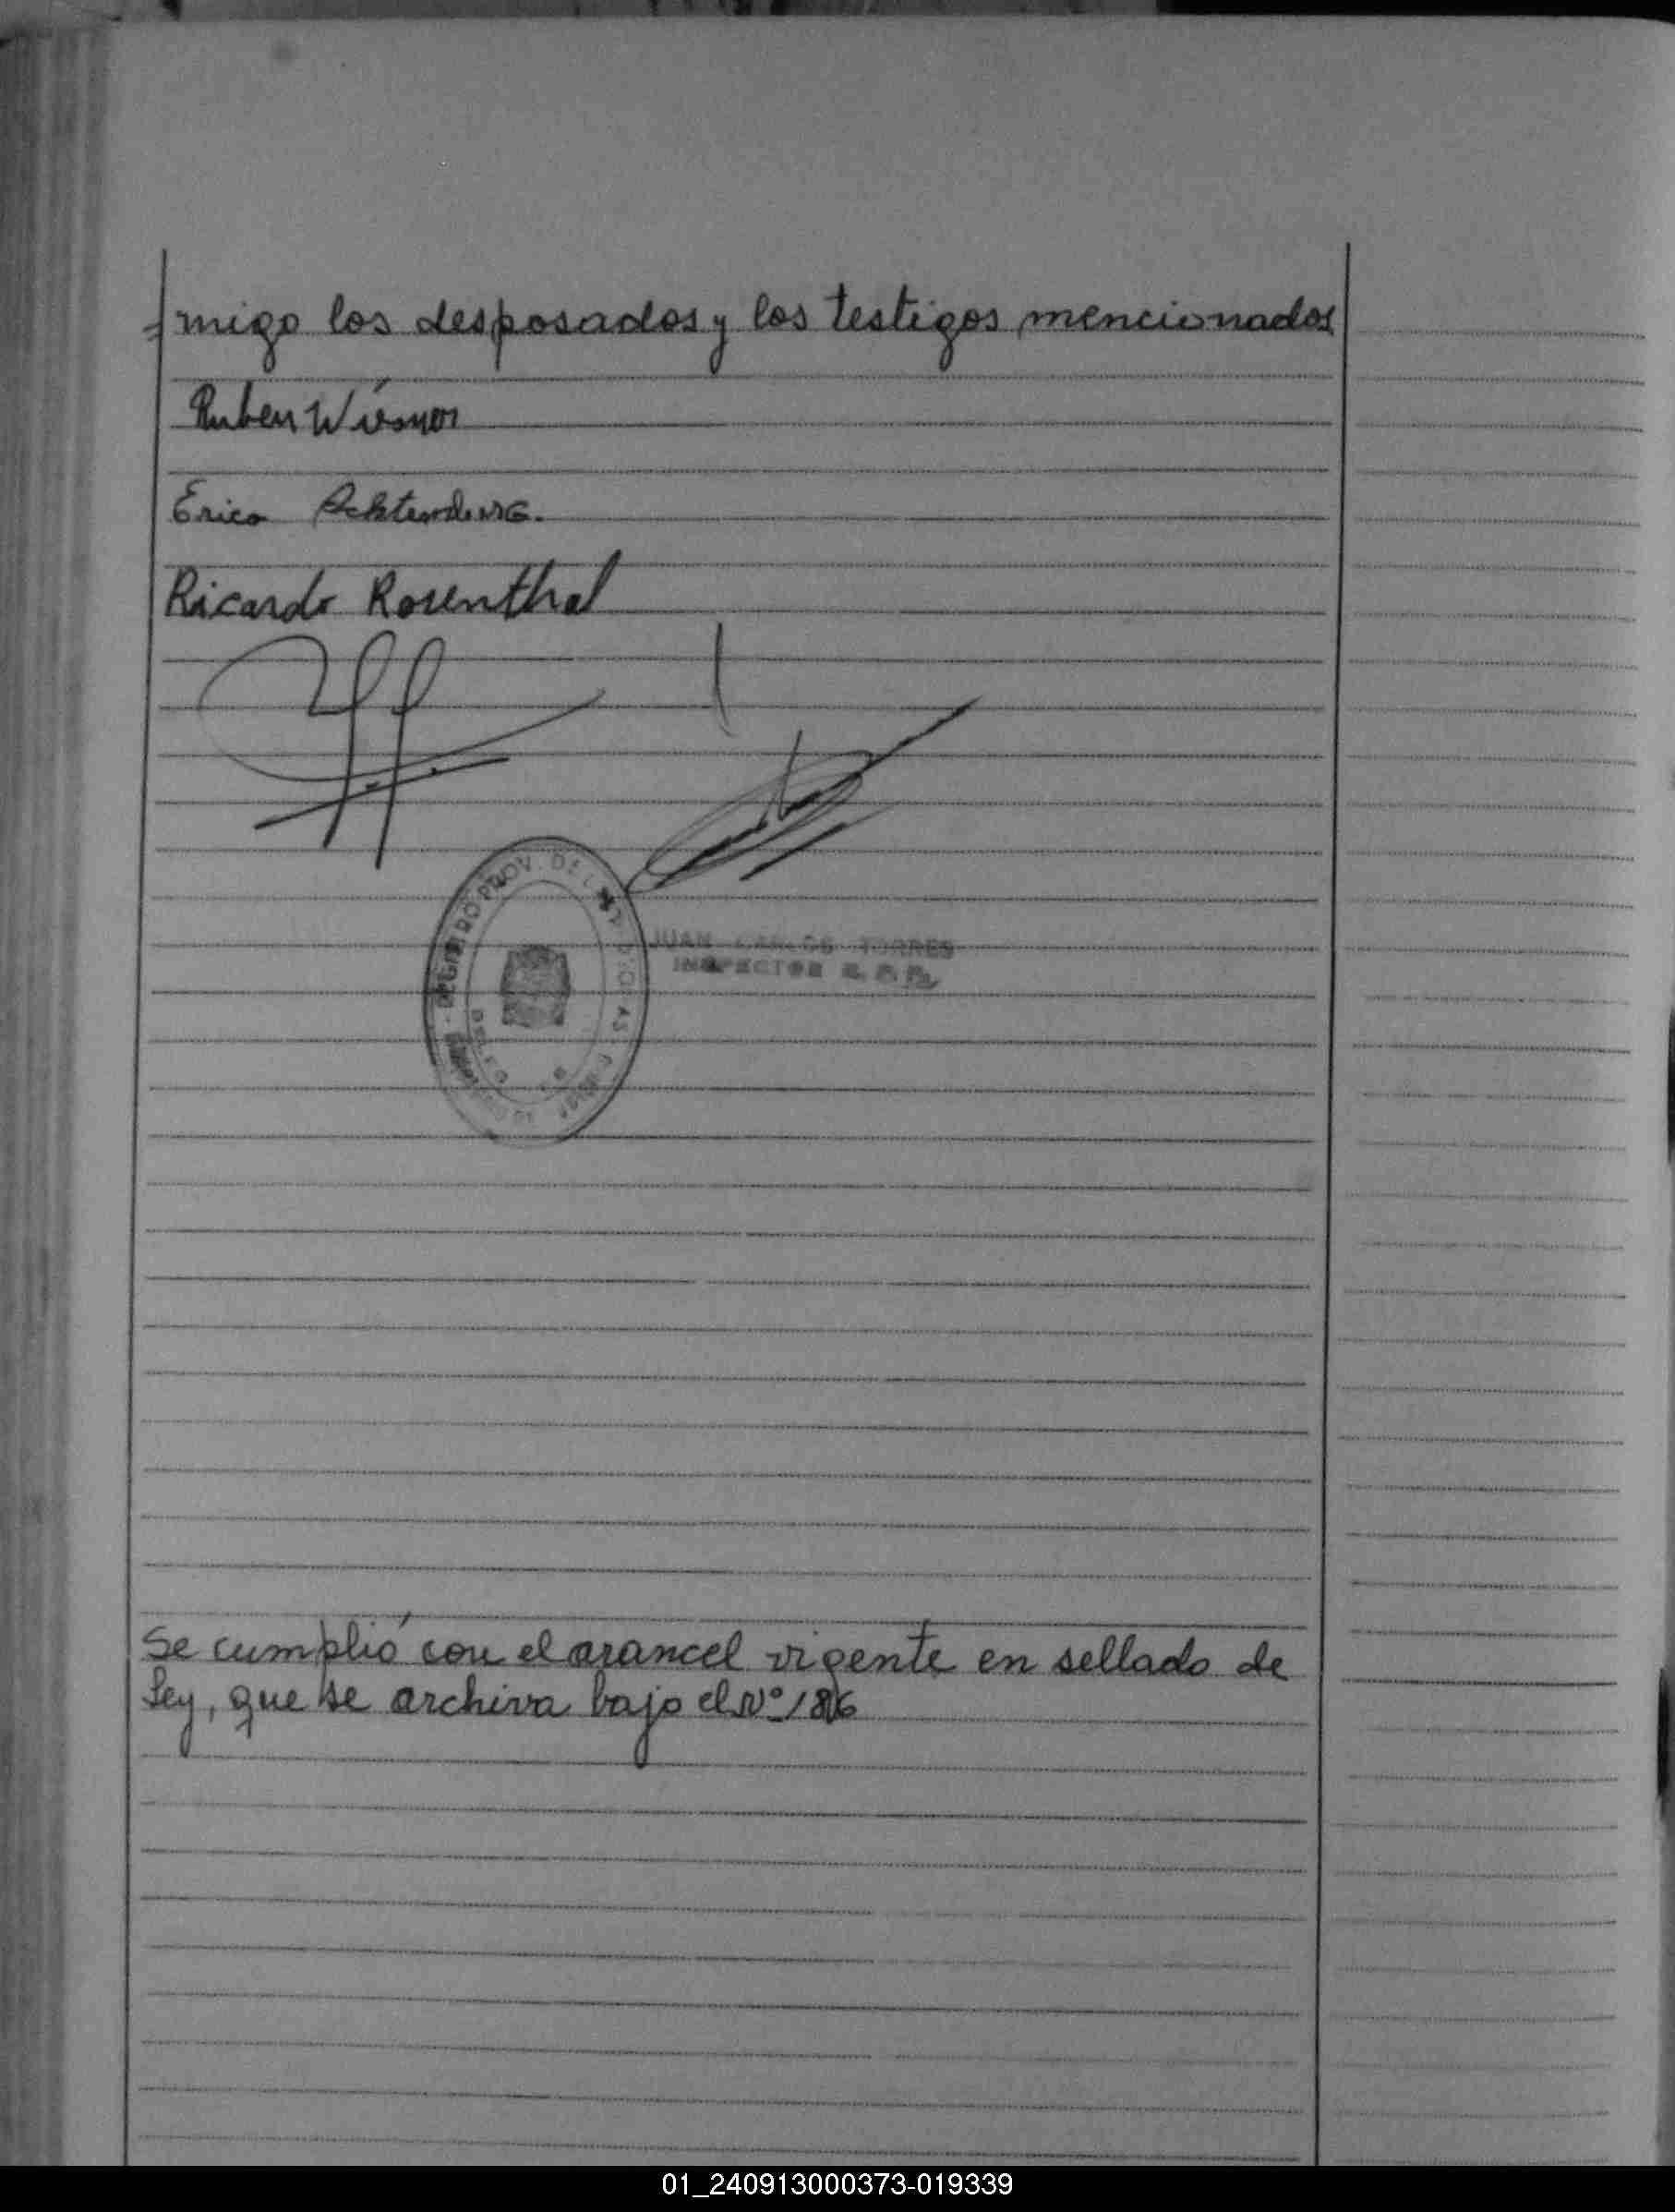 =migo los desposados y los testigos mencionados
Ruben
Erica
Ricardo Rosenthal
REGISTRO PROV. DE LAS
JUAN CARLOS TORRES
INSPECTOR
Se cumplió con el arancel vigente en sellado de
Ley, que se archiva bajo el Nº 186
01_240913000373-019339